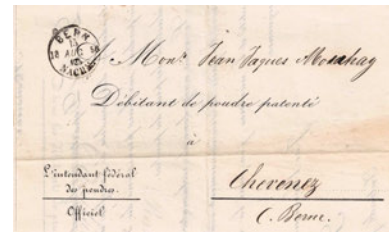 BERN
18 AUG 58
NACHM.
Mons. Jean Jaques
Débitant de poudre patenté
à
L'intendant fédéral
des poudres.
Officiel
Chevenez
C. Berne.